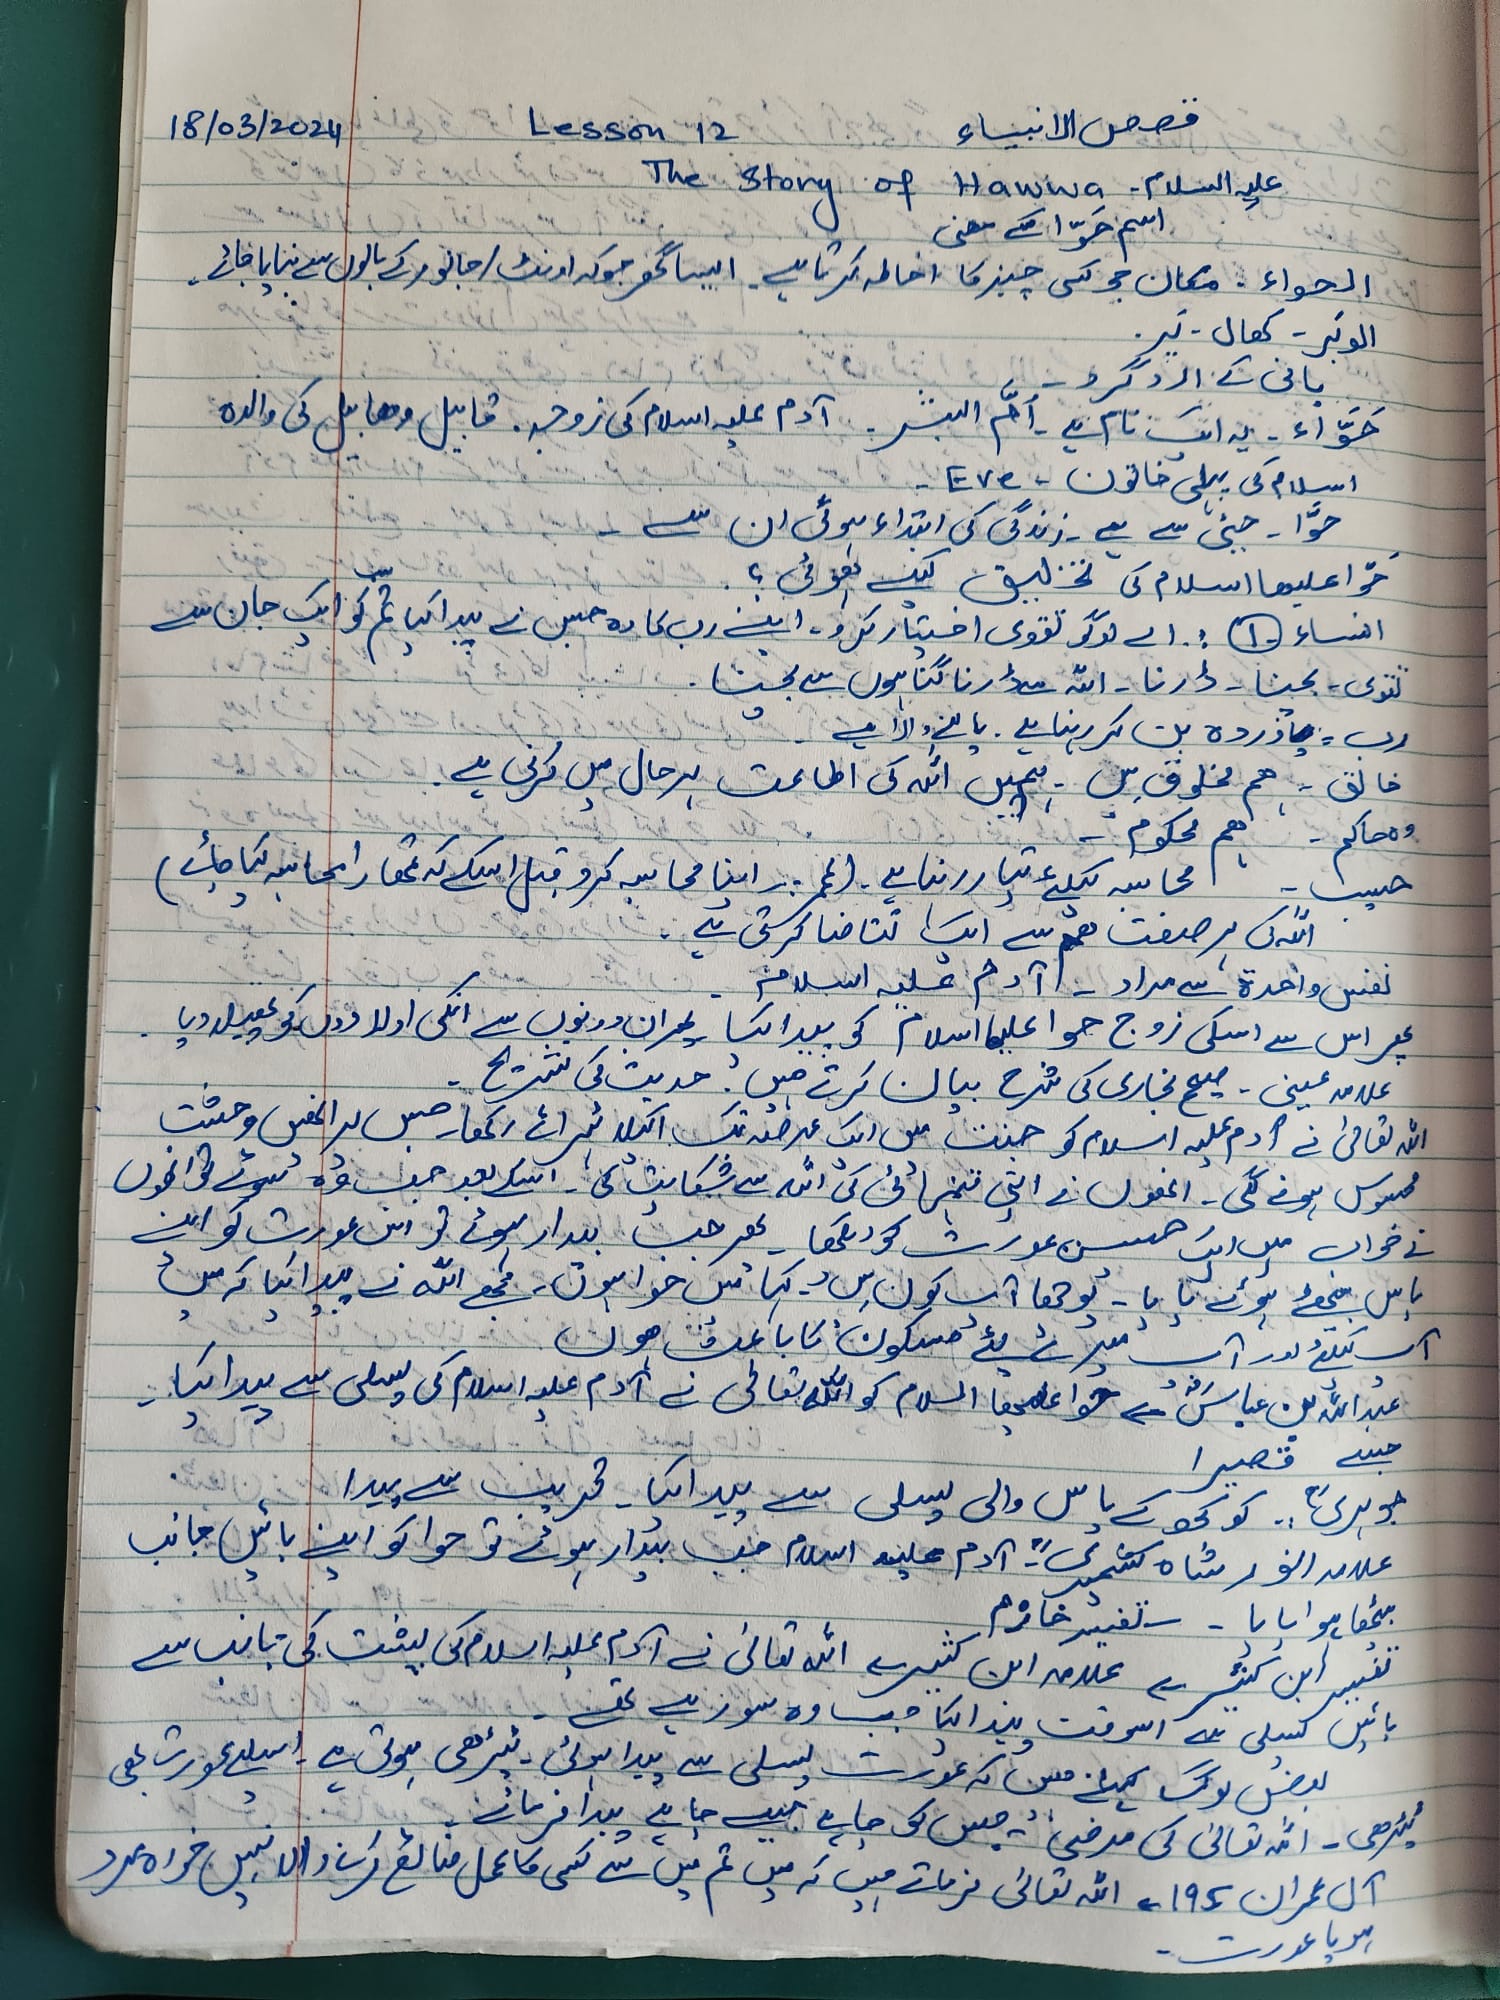 قصص الانبیاء Lesson 12 18/03/2024
The Story of Hawwa - علیہ السلام
اسم حَوّا کے معنی
الحواء : مکان جو کسی چیز کا احاطہ کرتا ہے۔ ایسا گھر جوکہ اونٹ/جانور کے بالوں سے بنایا جائے۔
الوبَر - کھال -
پانی کے ارد گرد -
حَوَّاء - یہ ایک نام ہے - اُمّ البشر - آدم علیہ اسلام کی زوجہ . قابیل وھابیل کی والدہ
اسلام کی پہلی خاتون - Eve -
حوَّا - حیّ سے ہے - زندگی کی ابتداء ہوئی ان سے -
حَوّا علیھا اسلام کی تخلیق کیسے ہوئی ؟
النساء (1) :. اے لوگو تقوی اختیار کرو - اپنے رب کا وہ جس نے پیدا کیا تم سب کو ایک جان سے
تقوی - بچنا - ڈرنا - اللہ سے ڈرنا گناہوں سے بچنا .
رب - بن کر رہنا ہے . پالنے والا ہے -
خالق - ہم مخلوق ہیں - ہمیں اللہ کی اطاعت ہر حال میں کرنی ہے .
وہ حاکم - ہم محکوم -
حسیب - محاسبہ کیلئے تیار رہنا ہے - (عمر :. اپنا محاسبہ کرو قبل اسکے کہ تمھارا محاسبہ کیا جائے)
اللہ کی ہر صفت ہم سے ایک تقاضا کرتی ہے .
نفس واحدة سے مراد - آدم علیہ اسلام -
پھر اس سے اسکی زوج حوا علیھا اسلام کو پیدا کیا - پھر ان دونوں سے انکی اولادوں کو پھیلا دیا .
علامہ عینی - صحیح بخاری کی شرح بیان کرتے ہیں : حدیث کی تشریح -
اللہ تعالیٰ نے آدم علیہ اسلام کو جنت میں ایک عرصہ تک اکیلا ٹہرائے رکھا - جس پر انھیں وحشت
محسوس ہونے لگی - انھوں نے اپنی تنہائی کی اللہ سے شکایت کی - اسکے بعد جب وہ سوئے تو انھوں
نے خواب میں ایک حسین عورت کو دیکھا - پھر جب بیدار ہوئے تو اس عورت کو اپنے
پاس بیٹھے ہوئے پایا - پوچھا آپ کون ہیں - کہا میں حوا ہوں - مجھے اللہ نے پیدا کیا کہ میں
آپ کیلئے اور آپ میرے لئے سکون کا باعث ہوں
عبداللہ بن عباسؓ ← حوا علیھا السلام کو اللہ تعالی نے آدم علیہ اسلام کی پسلی سے پیدا کیا -
جسے قصیرا
جوہریؒ :. کوکھ کے پاس والی پسلی سے پیدا کیا - سے پیدا
علامہ انور شاہ کشمیریؒ - آدم علیہ اسلام جب بیدار ہوئے تو حوا کو اپنے بائیں جانب
بیٹھا ہوا پایا -
تفسیر ابن کثیر ← علامہ ابن کثیر ← اللہ تعالیٰ نے آدم علیہ اسلام کی پشت کی جانب سے
بائیں پسلی سے اسوقت پیدا کیا جب وہ سو رہے تھے -
بعض لوگ کہتے ہیں کہ عورت پسلی سے پیدا ہوئی - ٹیڑھی ہوتی ہے - اسلئے عورت بھی
ٹیڑھی - اللہ تعالیٰ کی مرضی - جس کو چاہے جیسے چاہے پیدا فرمائے -
آل عمران 195 ← اللہ تعالیٰ فرماتے ہیں کہ میں تم میں سے کسی کا عمل ضائع کرنے والا نہیں خواہ مرد
ہو یا عورت -